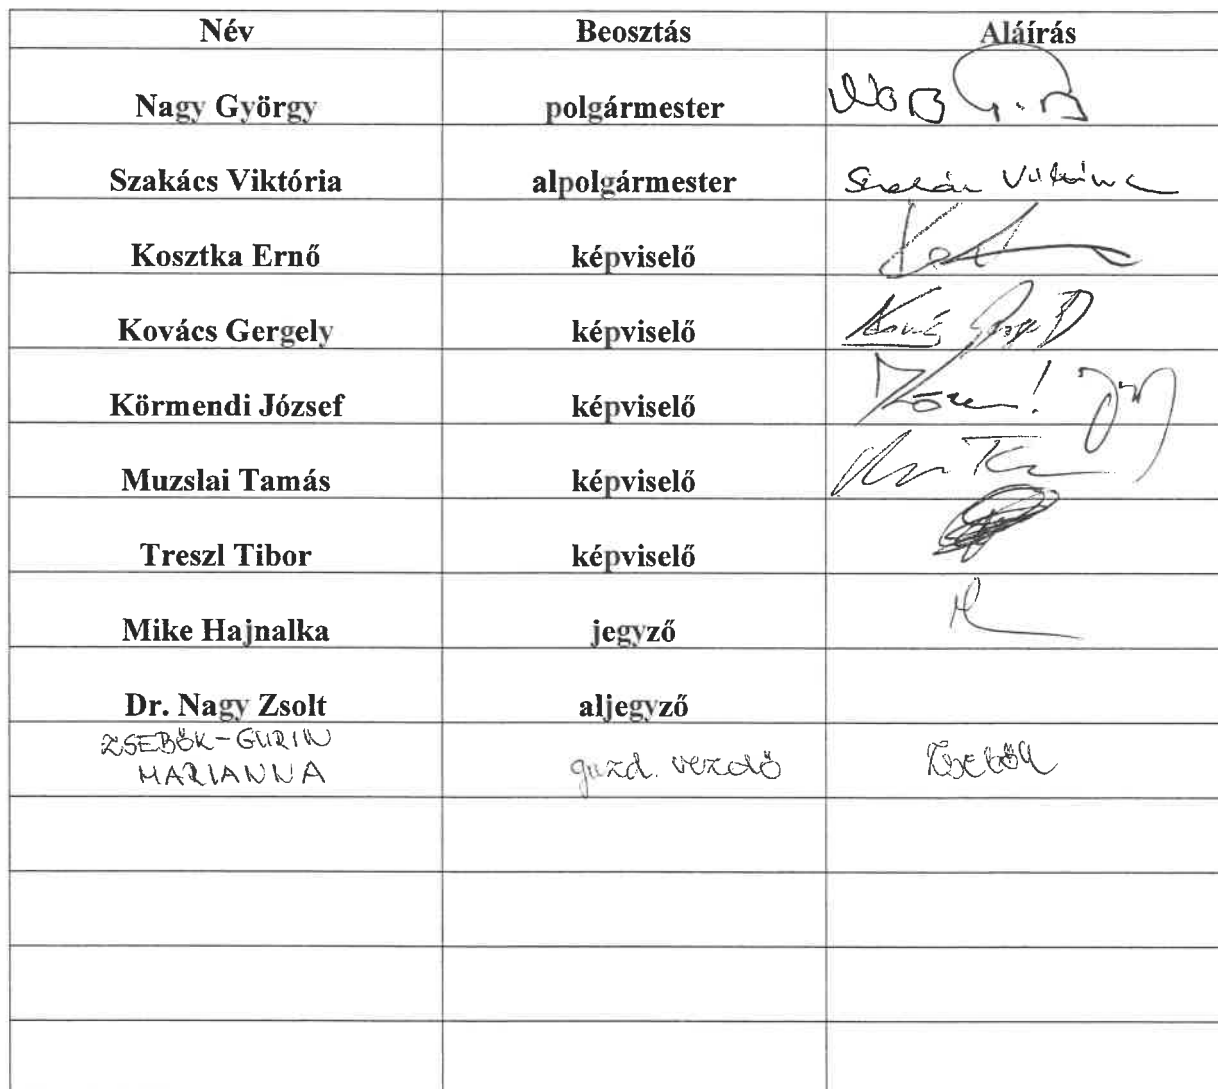 Név Beosztás Aláírás
Nagy György polgármester
Szakács Viktória alpolgármester
Kosztka Ernő képviselő
Kovács Gergely képviselő
Körmendi József képviselő
Muzslai Tamás képviselő
Treszl Tibor képviselő
Mike Hajnalka jegyző
Dr. Nagy Zsolt aljegyző
ZSEBŐK-GURIN
MARIANNA gazd. vezető Zsebők